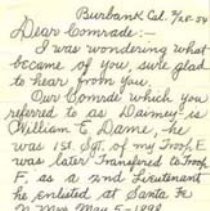 Burbank Cal. 7/28-54
Dear Comrade:-
I was wondering what
became of you, sure glad
to hear from you.
Our Comrde which you
referred to as Daimey is
William E. Dame, he
was 1st. Sgt. of my Troop E
was later Transfered to Troop
F. as a 2nd Lieutenant
he enlisted at Santa Fe
N. Mex. May 5-1898